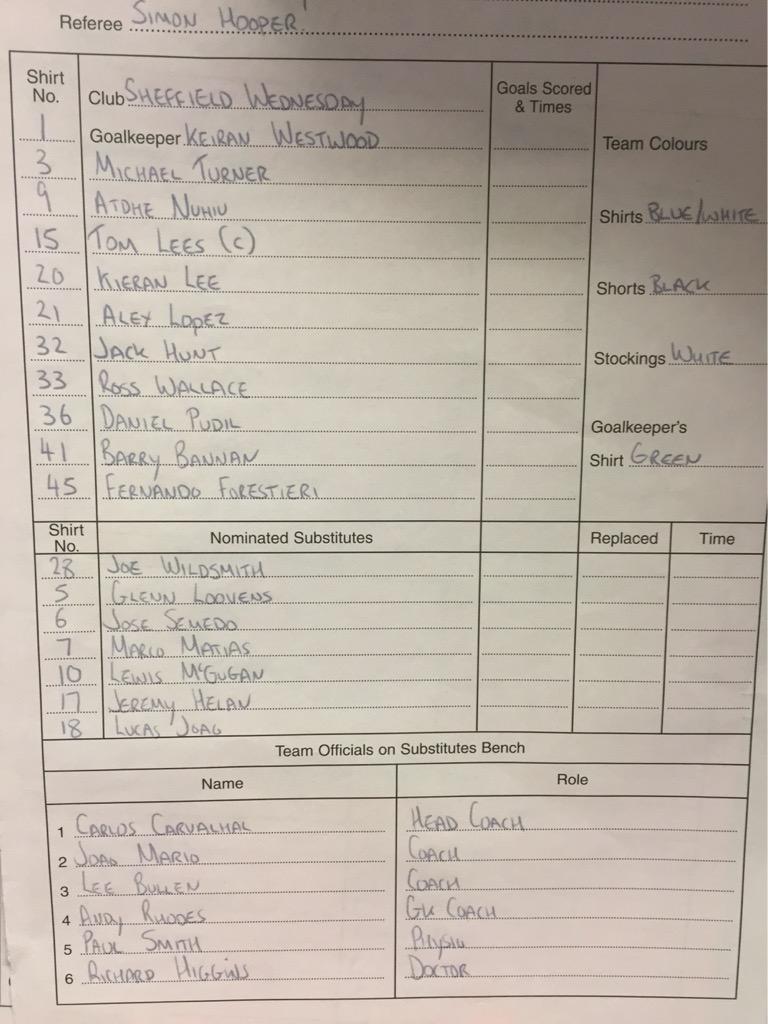 Referee SIMON HOOPER
Shirt No.
Club SHEFFIELD WEDNESDAY
Goals Scored & Times
1 Goalkeeper KEIRAN WESTWOOD
Team Colours
3 MICHAEL TURNER
9 ATDHE NUHIU
Shirts BLUE/WHITE
15 TOM LEES (C)
20 KIERAN LEE
Shorts BLACK
21 ALEX LOPEZ
32 JACK HUNT
Stockings WHITE
33 ROSS WALLACE
36 DANIEL PUDIL
Goalkeeper's
41 BARRY BANNAN
Shirt GREEN
45 FERNANDO FORESTIERI
Shirt No. Nominated Substitutes Replaced Time
28 JOE WILDSMITH
5 GLENN LOOVENS
6 JOSE SEMEDO
7 MARCO MATIAS
10 LEWIS McGUGAN
17 JEREMY HELAN
18 LUCAS JOAO
Team Officials on Substitutes Bench
Name Role
1 CARLOS CARVALHAL HEAD COACH
2 JOAO MARIO COACH
3 LEE BULLEN COACH
4 ANDY RHODES GK COACH
5 PAUL SMITH PHYSIO
6 RICHARD HIGGINS DOCTOR